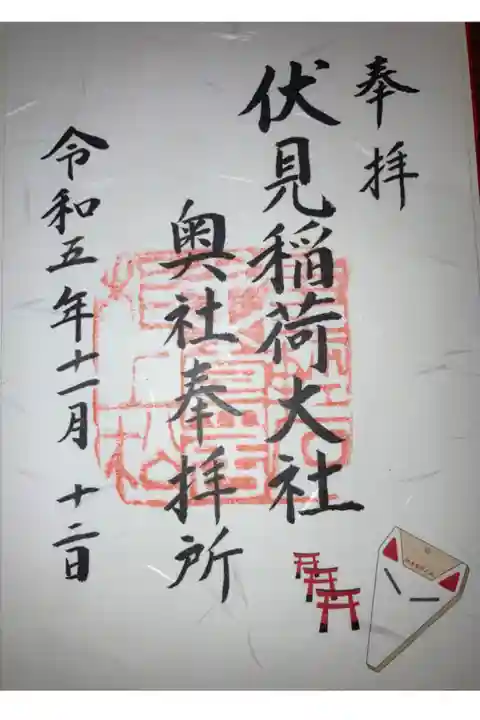 奉拝
伏見稲荷大社
奥社奉拝所
令和五年十一月十二日